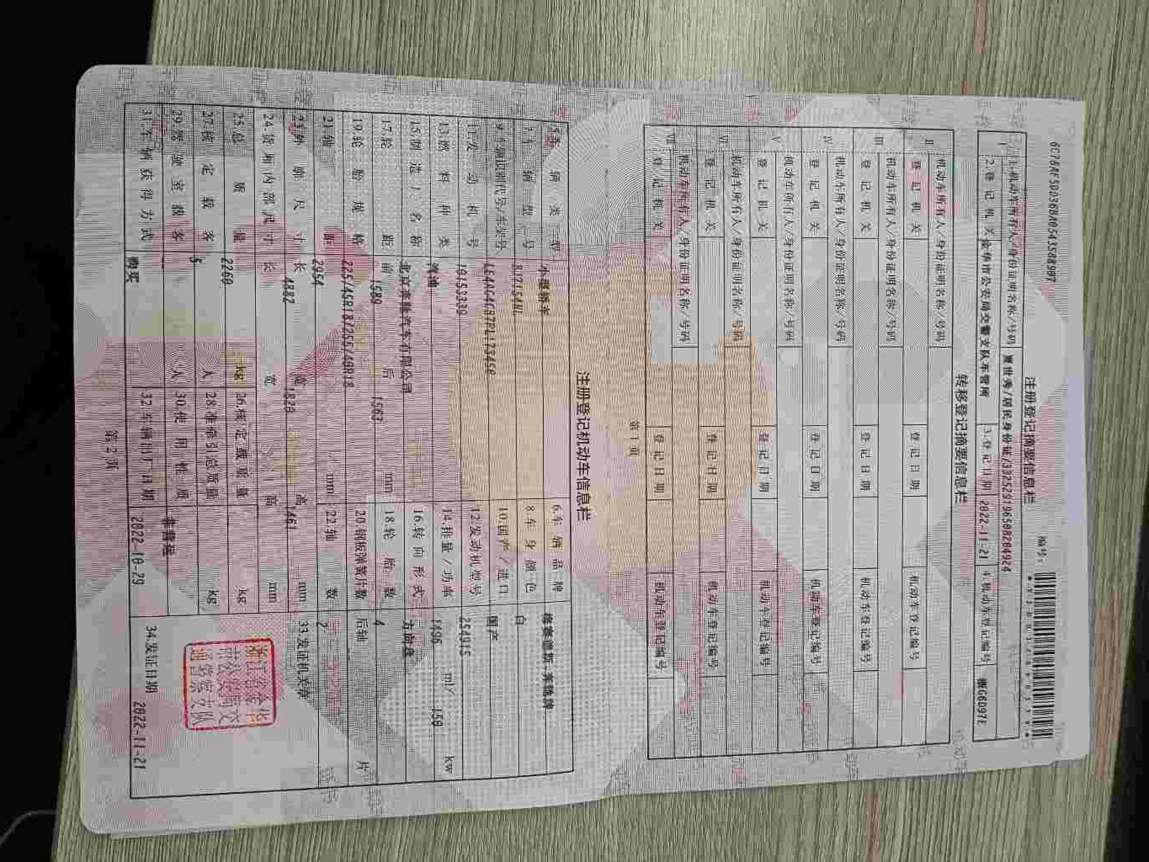 注册登记摘要信息栏
编号:
1.机动车所有人/身份证明名称/号码 夏世秀/居民身份证/332529196508204924
2.登记机关 金华市公安局交警支队车管所 3.登记日期 2022-11-21 4.机动车登记编号 浙G6D97E
转移登记摘要信息栏
II 机动车所有人/身份证明名称/号码
登记机关 登记日期 机动车登记编号
III 机动车所有人/身份证明名称/号码
登记机关 登记日期 机动车登记编号
IV 机动车所有人/身份证明名称/号码
登记机关 登记日期 机动车登记编号
V 机动车所有人/身份证明名称/号码
登记机关 登记日期 机动车登记编号
VI 机动车所有人/身份证明名称/号码
登记机关 登记日期 机动车登记编号
VII 机动车所有人/身份证明名称/号码
登记机关 登记日期 机动车登记编号
第1页
注册登记机动车信息栏
5.车辆类型 小型轿车 6.车辆品牌 梅赛德斯-奔驰牌
7.车辆型号 8.车身颜色 白
9.车辆识别代号/车架号 10.国产/进口 国产
11.发动机号 12.发动机型号 254915
13.燃料种类 汽油 14.排量/功率 1496 ml/ 150 kw
15.制造厂名称 北京奔驰汽车有限公司 16.转向形式 方向盘
17.轮距 前 1589 后 1563 mm 18.轮胎数 4
19.轮胎规格 225/45R18/255/40R18 20.钢板弹簧片数 后轴 片
21.轴距 2954 mm 22.轴数 2
23.外廓尺寸 长 4882 宽 1820 高 1461 mm 33.发证机关章
24.货厢内部尺寸 长 宽 高 mm
25.总质量 2260 kg 26.核定载质量 kg
27.核定载客 5 人 28.准牵引总质量 kg
29.驾驶室载客 人 30.使用性质 非营运
31.车辆获得方式 购买 32.车辆出厂日期 2022-10-29 34.发证日期 2022-11-21
第2页